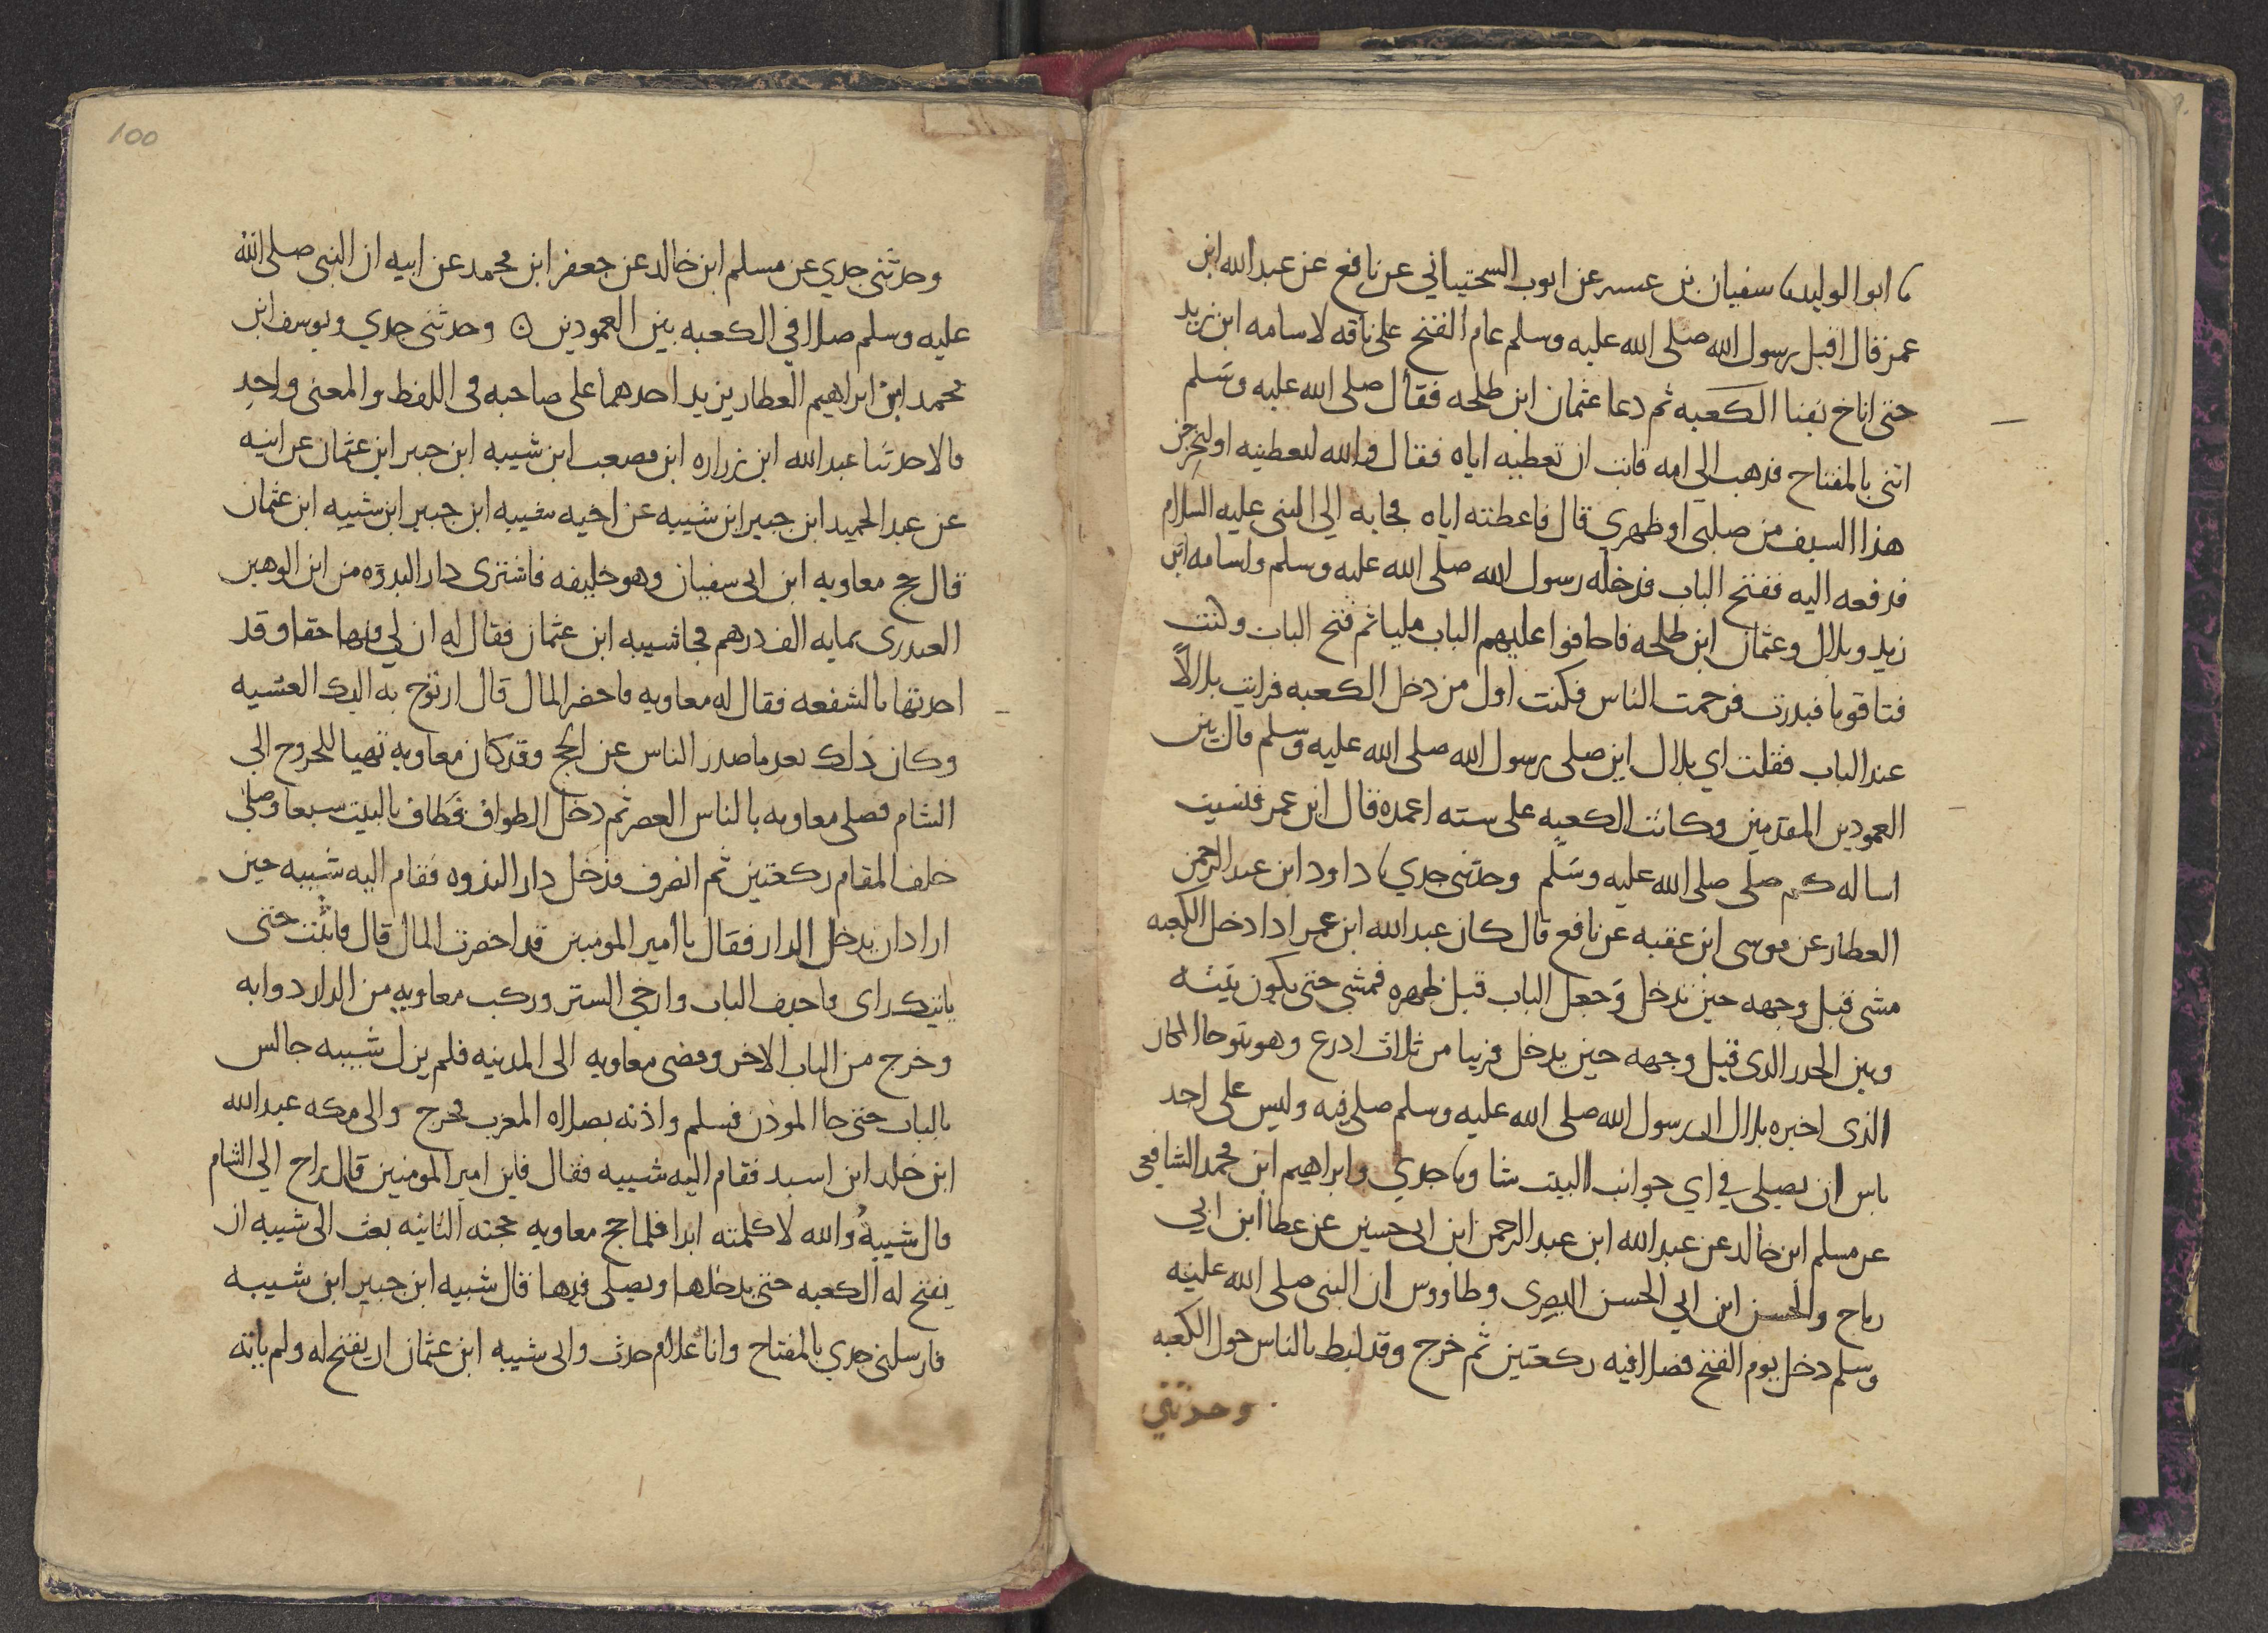 ابو الوليد سفيان بن عيينه عن ايوب السختياني عن نافع عن عبد الله ابن
عمر قال اقبل رسول الله صلى الله عليه وسلم عام الفتح على ناقه لاسامه ابن زيد
حتى اناخ بفنا الكعبه ثم دعا عثمان ابن طلحه فقال صلى الله عليه وسلم
ائتني بالمفتاح فذهب الي امه فابت ان تعطيه اياه فقال والله لتعطينه او ليخرجن
هذا السيف من صلبي او ظهري قال فاعطته اياه فجا به الي النبي عليه السلام
فدفعه اليه ففتح الباب فدخله رسول الله صلى الله عليه وسلم واسامه ابن
زيد وبلال وعثمان ابن طلحه فاجافوا عليهم الباب مليا ثم فتح الباب وكنت
فتا قويا فبدرت فزحمت الناس فكنت اول من دخل الكعبه فرايت بلالاً
عند الباب فقلت اي بلال اين صلى رسول الله صلى الله عليه وسلم قال بين
العمودين المقدمين وكانت الكعبه على سته اعمده قال ابن عمر فنسيت
اساله كم صلى صلى الله عليه وسلم وحدثني جدي داود ابن عبد الرحمن
العطار عن موسى ابن عقبه عن نافع قال كان عبد الله ابن عمر اذا دخل الكعبه
مشى قبل وجهه حين يدخل وجعل الباب قبل ظهره فمشى حتى يكون بينه
وبين الجدر الذي قبل وجهه حين يدخل قريبا من ثلاث اذرع وهو يتوخا المكان
الذي اخبره بلال ان رسول الله صلى الله عليه وسلم صلى فيه وليس على احد
باس ان يصلي في اي جوانب البيت شا وما جدي وابراهيم ابن محمد الشافعي
عن مسلم ابن خالد عن عبد الله ابن عبد الرحمن ابن ابي حسين عن عطا ابن ابي
رباح والحسن ابن ابي الحسن البصري وطاووس ان النبي صلى الله عليه
وسلم دخل يوم الفتح فصلا فيه ركعتين ثم خرج وقد لبط بالناس حول الكعبه
وحدثني
100
وحدثني جدي عن مسلم ابن خالد عن جعفر ابن محمد عن ابيه ان النبي صلى الله
عليه وسلم صلا في الكعبه بين العمودين ۞ وحدثني جدي ويوسف ابن
محمد ابن ابراهيم العطار يزيد احدهما على صاحبه في اللفظ والمعنى واحد
قالا حدثنا عبد الله ابن زراره ابن مصعب ابن شيبه ابن جبير ابن عثمان عن ابيه
عن عبد الحميد ابن جبير ابن شيبه عن اخيه شيبه ابن جبير ابن شيبه ابن عثمان
قال حج معاويه ابن ابي سفيان وهو خليفه فاشترى دار الندوه من ابن الرهين
العبدري بمايه الف درهم فجا شيبه ابن عثمان فقال له ان لي فيها حقا وقد
اخذتها بالشفعه فقال له معاويه فاحضر المال قال اروح به اليك العشيه
وكان ذلك بعد ما صدر الناس عن الحج وقد كان معاويه تهيا للخروج الي
الشام فصلى معاويه بالناس العصر ثم دخل الطواف فطاف بالبيت سبعا وصلى
خلف المقام ركعتين ثم انصرف فدخل دار الندوه فقام اليه شيبه حين
اراد ان يدخل الدار فقال يا امير المومنين قد احضرت المال قال فاثبت حتى
ياتيك راي فاجيف الباب وارخي الستر وركب معاويه من الدار دوابه
وخرج من الباب الاخر ومضى معاويه الى المدينه فلم يزل شيبه جالس
بالباب حتى جا الموذن فسلم واذنه بصلاه المغرب فخرج والي مكه عبد الله
ابن خلد ابن اسيد فقام اليه شيبه فقال فاين امير المومنين قال راح الي الشام
قال شيبةُ والله لا كلمته ابدا فلما حج معاويه حجته الثانيه بعث الى شيبه ان
يفتح له الكعبه حتى يدخلها ويصلي فيها قال شيبه ابن جبير ابن شيبه
فارسلني جدي بالمفتاح وانا غلام حدث وابي شيبه ابن عثمان ان يفتح له ولم ياته